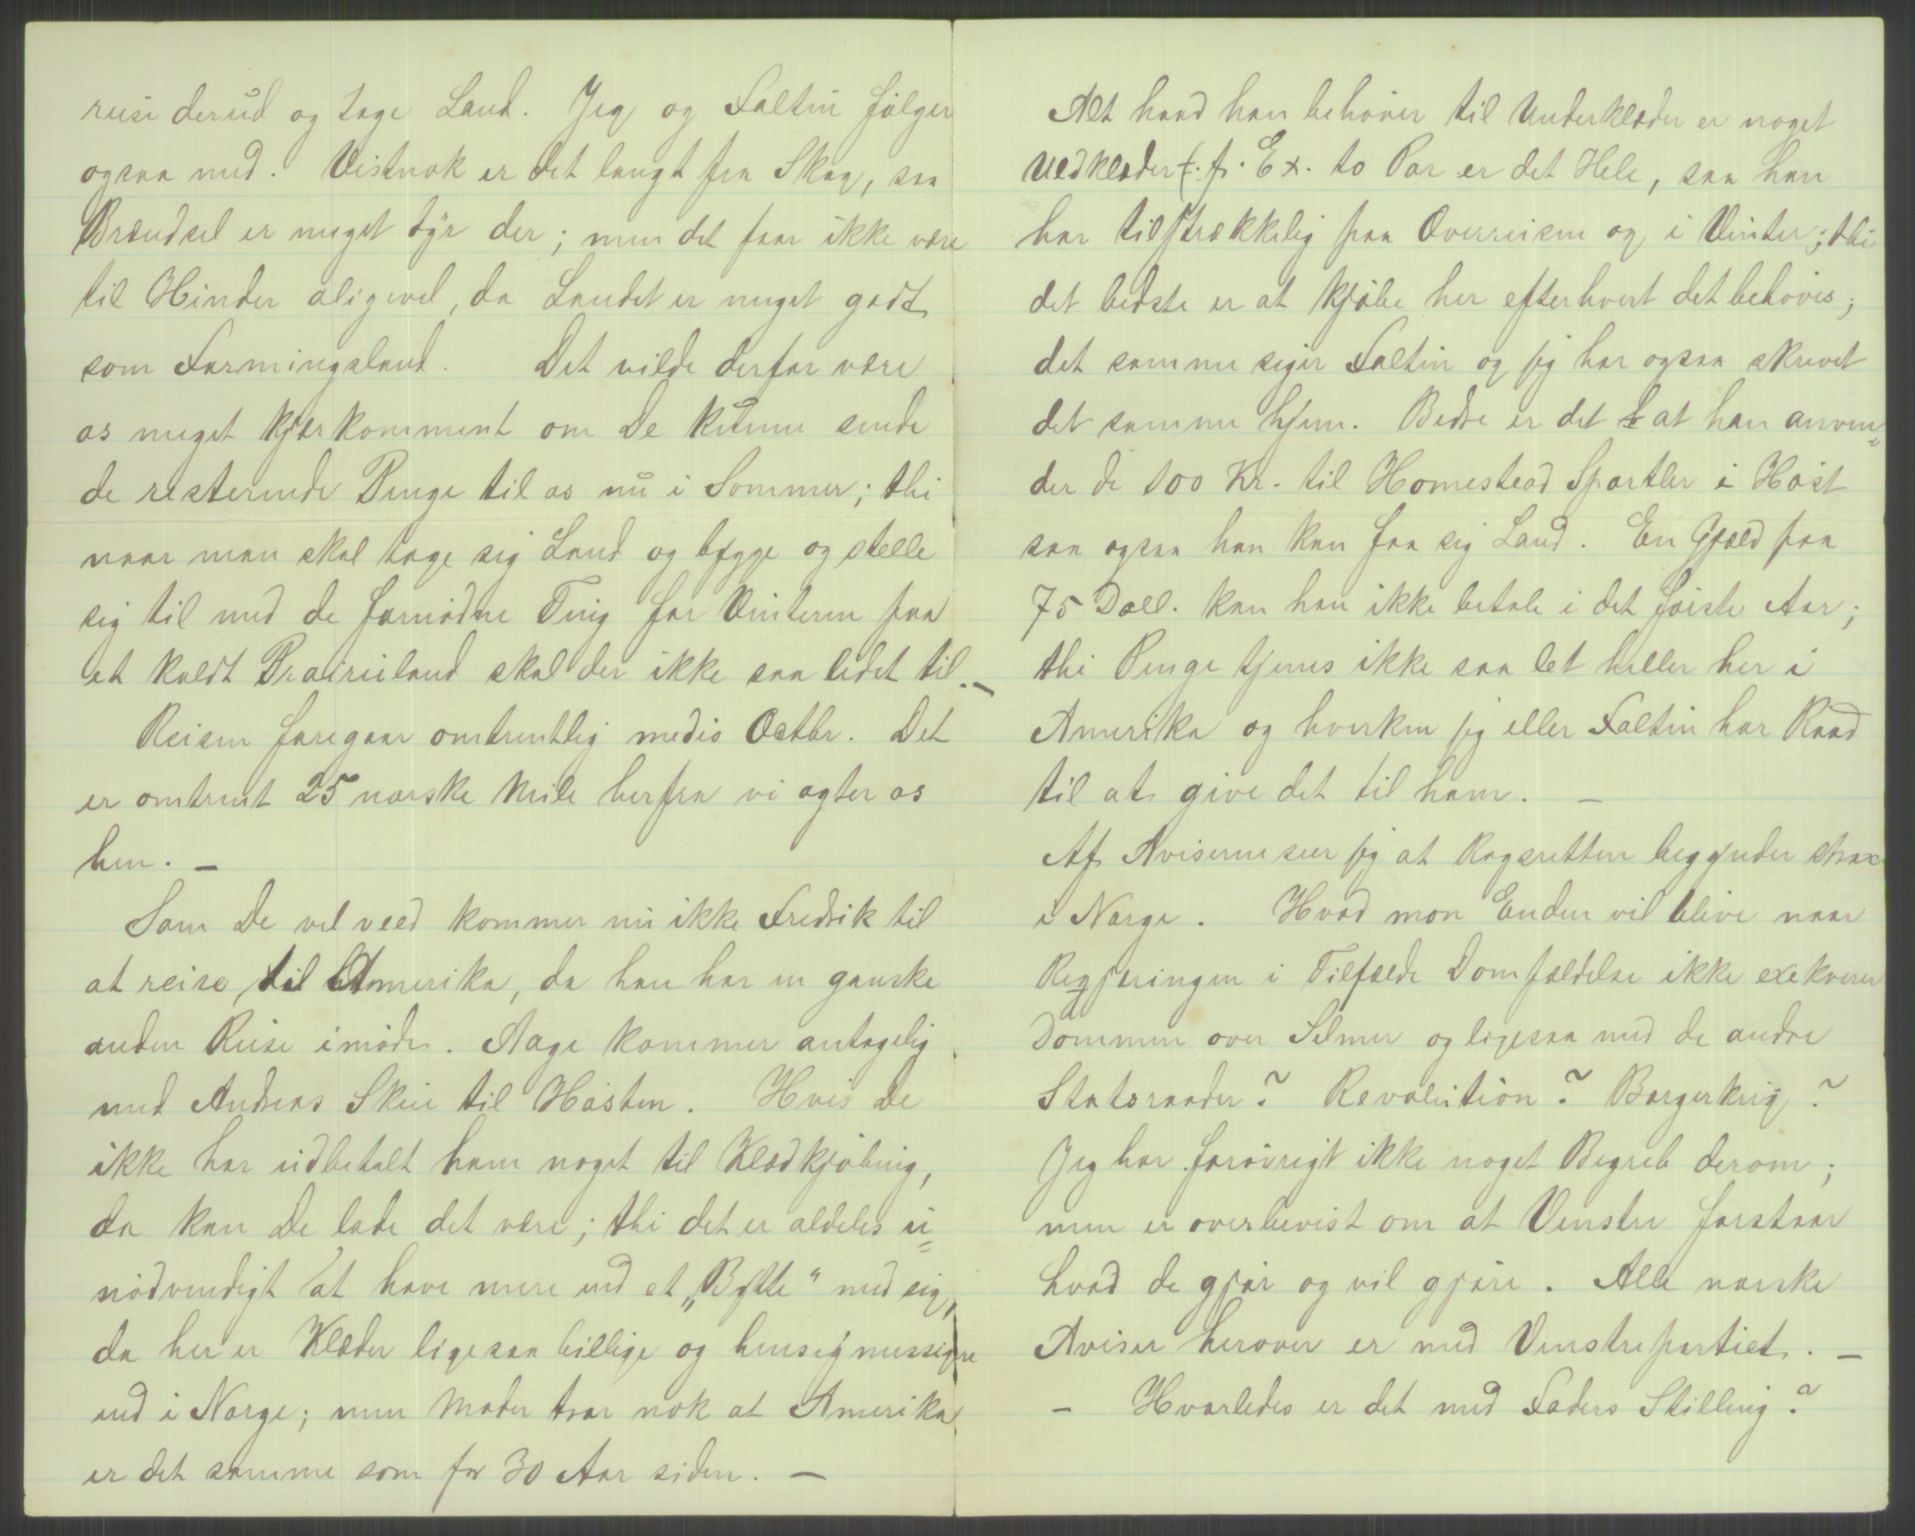 reise derud og tage Land. Jeg og Faltin følger
ogsaa med. Vistnok er det langt fra Skog, saa
Brændsel er meget dyr der; men det faar ikke være
til Hinder aligevel, da Landet er meget godt
som Farmingsland. Det vilde derfor være
os meget kjærkomment om De kunne sende
de resterende Penge til os nu i Sommer; thi
naar man skal tage sig Land og bygge og stelle
sig til med de fornødne Ting for Vinteren paa
et koldt Prairieland skal der ikke saa lidet til. —
Reisen foregaar omtrentlig medio Octbr. Det
er omtrent 25 norske Mile herfra vi agter os
hen. —
Som De vel veed kommer nu ikke Fredrik til
at reise til Amerika, da han har en ganske
anden Reise imøde. Aage kommer antagelig
med Andreas Skei til Høsten. Hvis De
ikke har udbetalt ham noget til Klædkjøbing,
da kan De lade det være; thi det er aldeles u=
nødvendigt at have mere end et „Bytte" med sig,
da her er Klæder ligesaa billige og hensigmessige
end i Norge; men Moder tror nok at Amerika
er det samme som for 30 Aar siden. —
Alt hvad han behøver til Underklæder er noget
Uldklæder f. Ex. to Par er det Hele, saa han
har tilstrækkelig paa Overreisen og i Vinter; thi
det bedste er at kjøbe her efterhvert det behøves;
det samme siger Faltin og jeg har ogsaa skrevet
det samme hjem. Bedre er det at han anven=
der de 100 Kr. til Homestead Sportler i Høst
saa ogsaa han kan faa sig Land. En Gjæld paa
75 Doll. kan han ikke betale i det første Aar;
thi Penge tjenes ikke saa let heller her i
Amerika og hverken jeg eller Faltin har Raad
til at give det til ham. —
Af Aviserne seer jeg at Rigsretten begynder strax
i Norge. Hvad mon Enden vil blive naar
Regjæringen i Tilfælde Domfældelse ikke exekverer
Dommen over Selmer og ligesaa med de andre
Statsraader? Revolution? Borgerkrig?
Jeg har forøvrigt ikke noget Begreb derom;
men er overbevist om at Venstre forstaar
hvad de gjør og vil gjøre. Alle norske
Aviser herover er med Venstrepartiet. —
— Hvorledes er det med Faders Stilling?